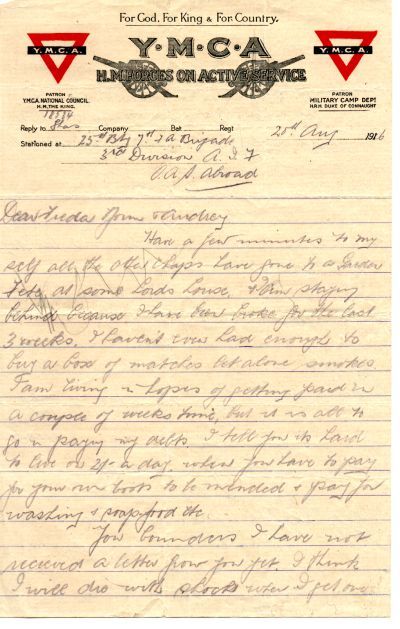 For God. For King & For Country.
Y.M.C.A.
Y.M.C.A
Y.M.C.A.
H.M. FORCES ON ACTIVE SERVICE
PATRON
Y.M.C.A. NATIONAL COUNCIL.
H.M. THE KING.
PATRON
MILITARY CAMP DEPT
H.R.H. DUKE OF CONNAUGHT
Reply to Company Bat Regt
20th Aug 1916
Stationed at 25th Bty 7th F A Brigade
3rd Division A. I. F
Abroad
Dear Freda Norm & Audrey
Have a few minutes to my
self all the other chaps have gone to a Garden
Fete at some Lords house. I am staying
behind because I have been broke for the last
3 weeks. I havent even had enough to
buy a box of matches let alone smokes.
I am living in hopes of getting paid in
a couple of weeks time, but it is all to
go in paying my debts. I tell you its hard
to live on 2/- a day. when you have to pay
for your own boots to be mended & pay for
washing & soap food etc.
You bounders I have not
received a letter from you yet. I think
I will die with shock when I get one!